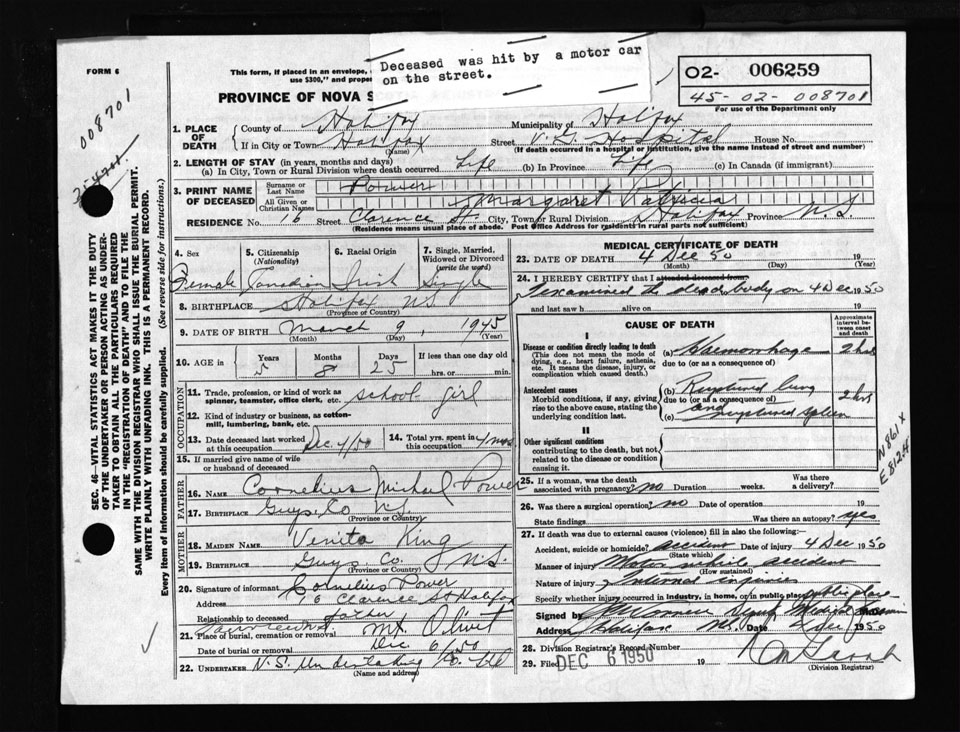 Deceased was hit by a motor car
on the street.
FORM 6
This form, if placed in an envelope,
use $300," and
PROVINCE OF NOVA S
02- 006259
45-02-008701
For use of the Department only
008701
SEC. 46—VITAL STATISTICS ACT MAKES IT THE DUTY
OF THE UNDERTAKER OR PERSON ACTING AS UNDER-
TAKER TO OBTAIN ALL THE PARTICULARS REQUIRED
IN THE "REGISTRATION OF DEATH" AND TO FILE THE
SAME WITH THE DIVISION REGISTRAR WHO SHALL ISSUE THE BURIAL PERMIT.
WRITE PLAINLY WITH UNFADING INK. THIS IS A PERMANENT RECORD.
Every item of Information should be carefully supplied. (See reverse side for instructions.)
1. PLACE OF DEATH
County of Halifax Municipality of Halifax
If in City or Town Halifax Street V. G. Hospital House No.
(Name) (If death occurred in a hospital or institution, give the name instead of street and number)
2. LENGTH OF STAY (in years, months and days)
(a) In City, Town or Rural Division where death occurred Life (b) In Province Life (c) In Canada (if immigrant)
3. PRINT NAME OF DECEASED
Surname or Last Name Power
All Given or Christian Names Margaret Patricia
RESIDENCE No. 16 Street Clarence St City, Town or Rural Division Halifax Province N.S.
(Residence means usual place of abode. Post Office Address for residents in rural parts not sufficient)
4. Sex 5. Citizenship (Nationality) 6. Racial Origin 7. Single, Married, Widowed or Divorced (write the word)
Female Canadian Irish Single
8. BIRTHPLACE Halifax N.S.
(Province or Country)
9. DATE OF BIRTH March 9, 1945
(Month) (Day) (Year)
10. AGE in Years Months Days If less than one day old
5 8 25 hrs. or min.
OCCUPATION
11. Trade, profession, or kind of work as spinner, teamster, office clerk, etc. school girl
12. Kind of industry or business, as cotton-mill, lumbering, bank, etc.
13. Date deceased last worked at this occupation Dec 4/50 14. Total yrs. spent in this occupation 4 mos.
15. If married give name of wife or husband of deceased
FATHER
16. Name Cornelius Michael Power
17. Birthplace Guys. Co N.S.
(Province or Country)
MOTHER
18. Maiden Name Venita King
19. Birthplace Guys. Co. N.S.
(Province or Country)
20. Signature of informant Cornelius Power
Address 16 Clarence St Halifax
Relationship to deceased father
21. Place of burial, cremation or removal Mt. Olivet
Date of burial or removal Dec 6/50
22. Undertaker N.S. Undertaking Co. Ltd
(Name and address)
MEDICAL CERTIFICATE OF DEATH
23. DATE OF DEATH 4 Dec 50 19
(Month) (Day)
24. I HEREBY CERTIFY that I attended deceased from
I examined the dead body on 4 Dec 1950
and last saw h alive on 19
CAUSE OF DEATH Approximate interval between onset and death
I
Disease or condition directly leading to death (a) Haemorrhage 2 hrs
(This does not mean the mode of dying, e.g., heart failure, asthenia, etc. It means the disease, injury, or complication which caused death.) due to (or as a consequence of)
Antecedent causes (b) Ruptured lung 2 hrs
Morbid conditions, if any, giving rise to the above cause, stating the underlying condition last. due to (or as a consequence of)
(c) and ruptured spleen
II
Other significant conditions contributing to the death, but not related to the disease or condition causing it.
N861 X
E812.4
25. If a woman, was the death associated with pregnancy? no Duration weeks. Was there a delivery?
26. Was there a surgical operation? no Date of operation 19
State findings Was there an autopsy? yes
27. If death was due to external causes (violence) fill in also the following:
Accident, suicide or homicide? accident Date of injury 4 Dec 1950
(State which)
Manner of injury Motor vehicle accident
(How sustained)
Nature of injury Internal injuries
Specify whether injury occurred in industry, in home, or in public place public place
Signed by Deputy Medical
Address Halifax N.S. Date 4 Dec 1950
28. Division Registrar's Record Number
29. Filed DEC 6 1950 19
(Division Registrar)